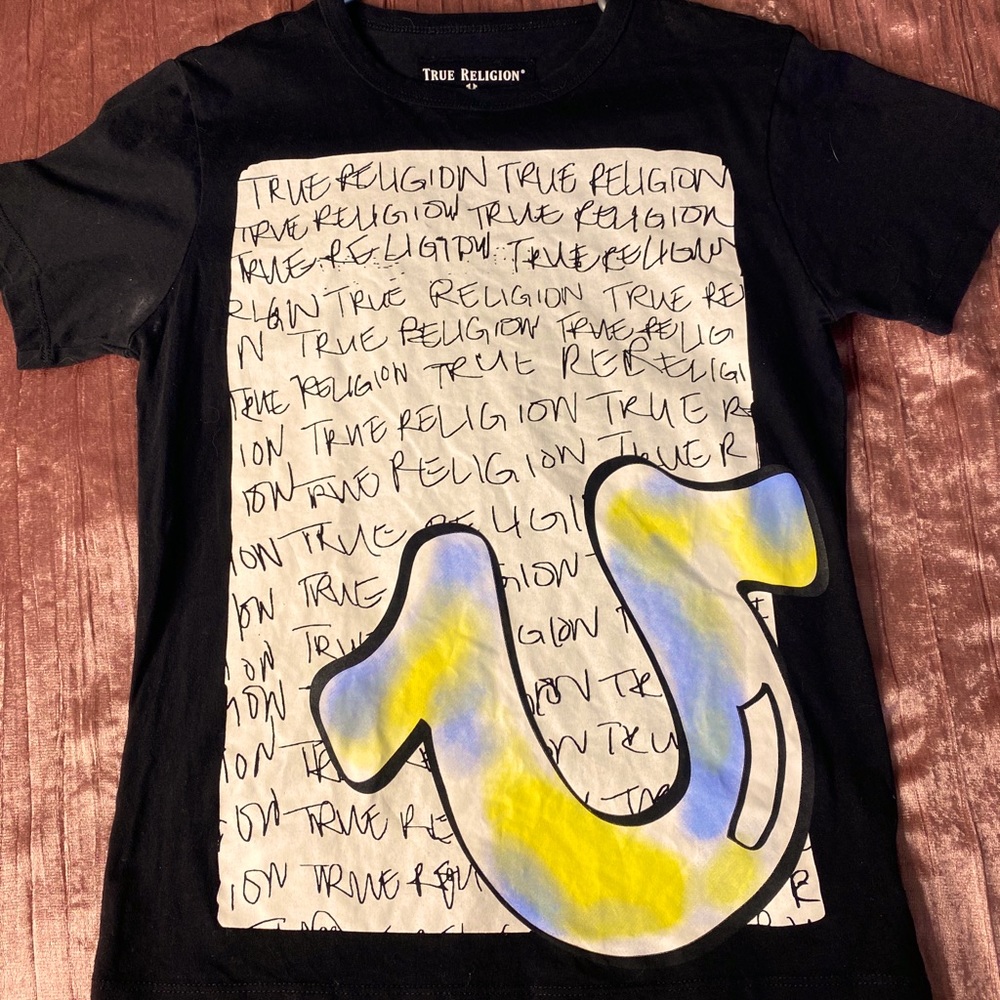 TRUE RELIGION®
TRUE RELIGION TRUE RELIGION
TRUE RELIGION TRUE RELIGION
TRUE RELIGION TRUE RELIGION
RLIGION TRUE RELIGION TRUE RE
N TRUE RELIGION TRUE RELIG
TRUE RELIGION TRUE RERELIGI
ION TRUE RELIGION TRUE RE
ION TRUE RELIGION TRUE R
ION TRUE RELIGI
ION TRUE GION
ION TRUE GION T
ION ION TR
ION TR N TRU
ION TRUE RE TR
ION TRUE RELI R